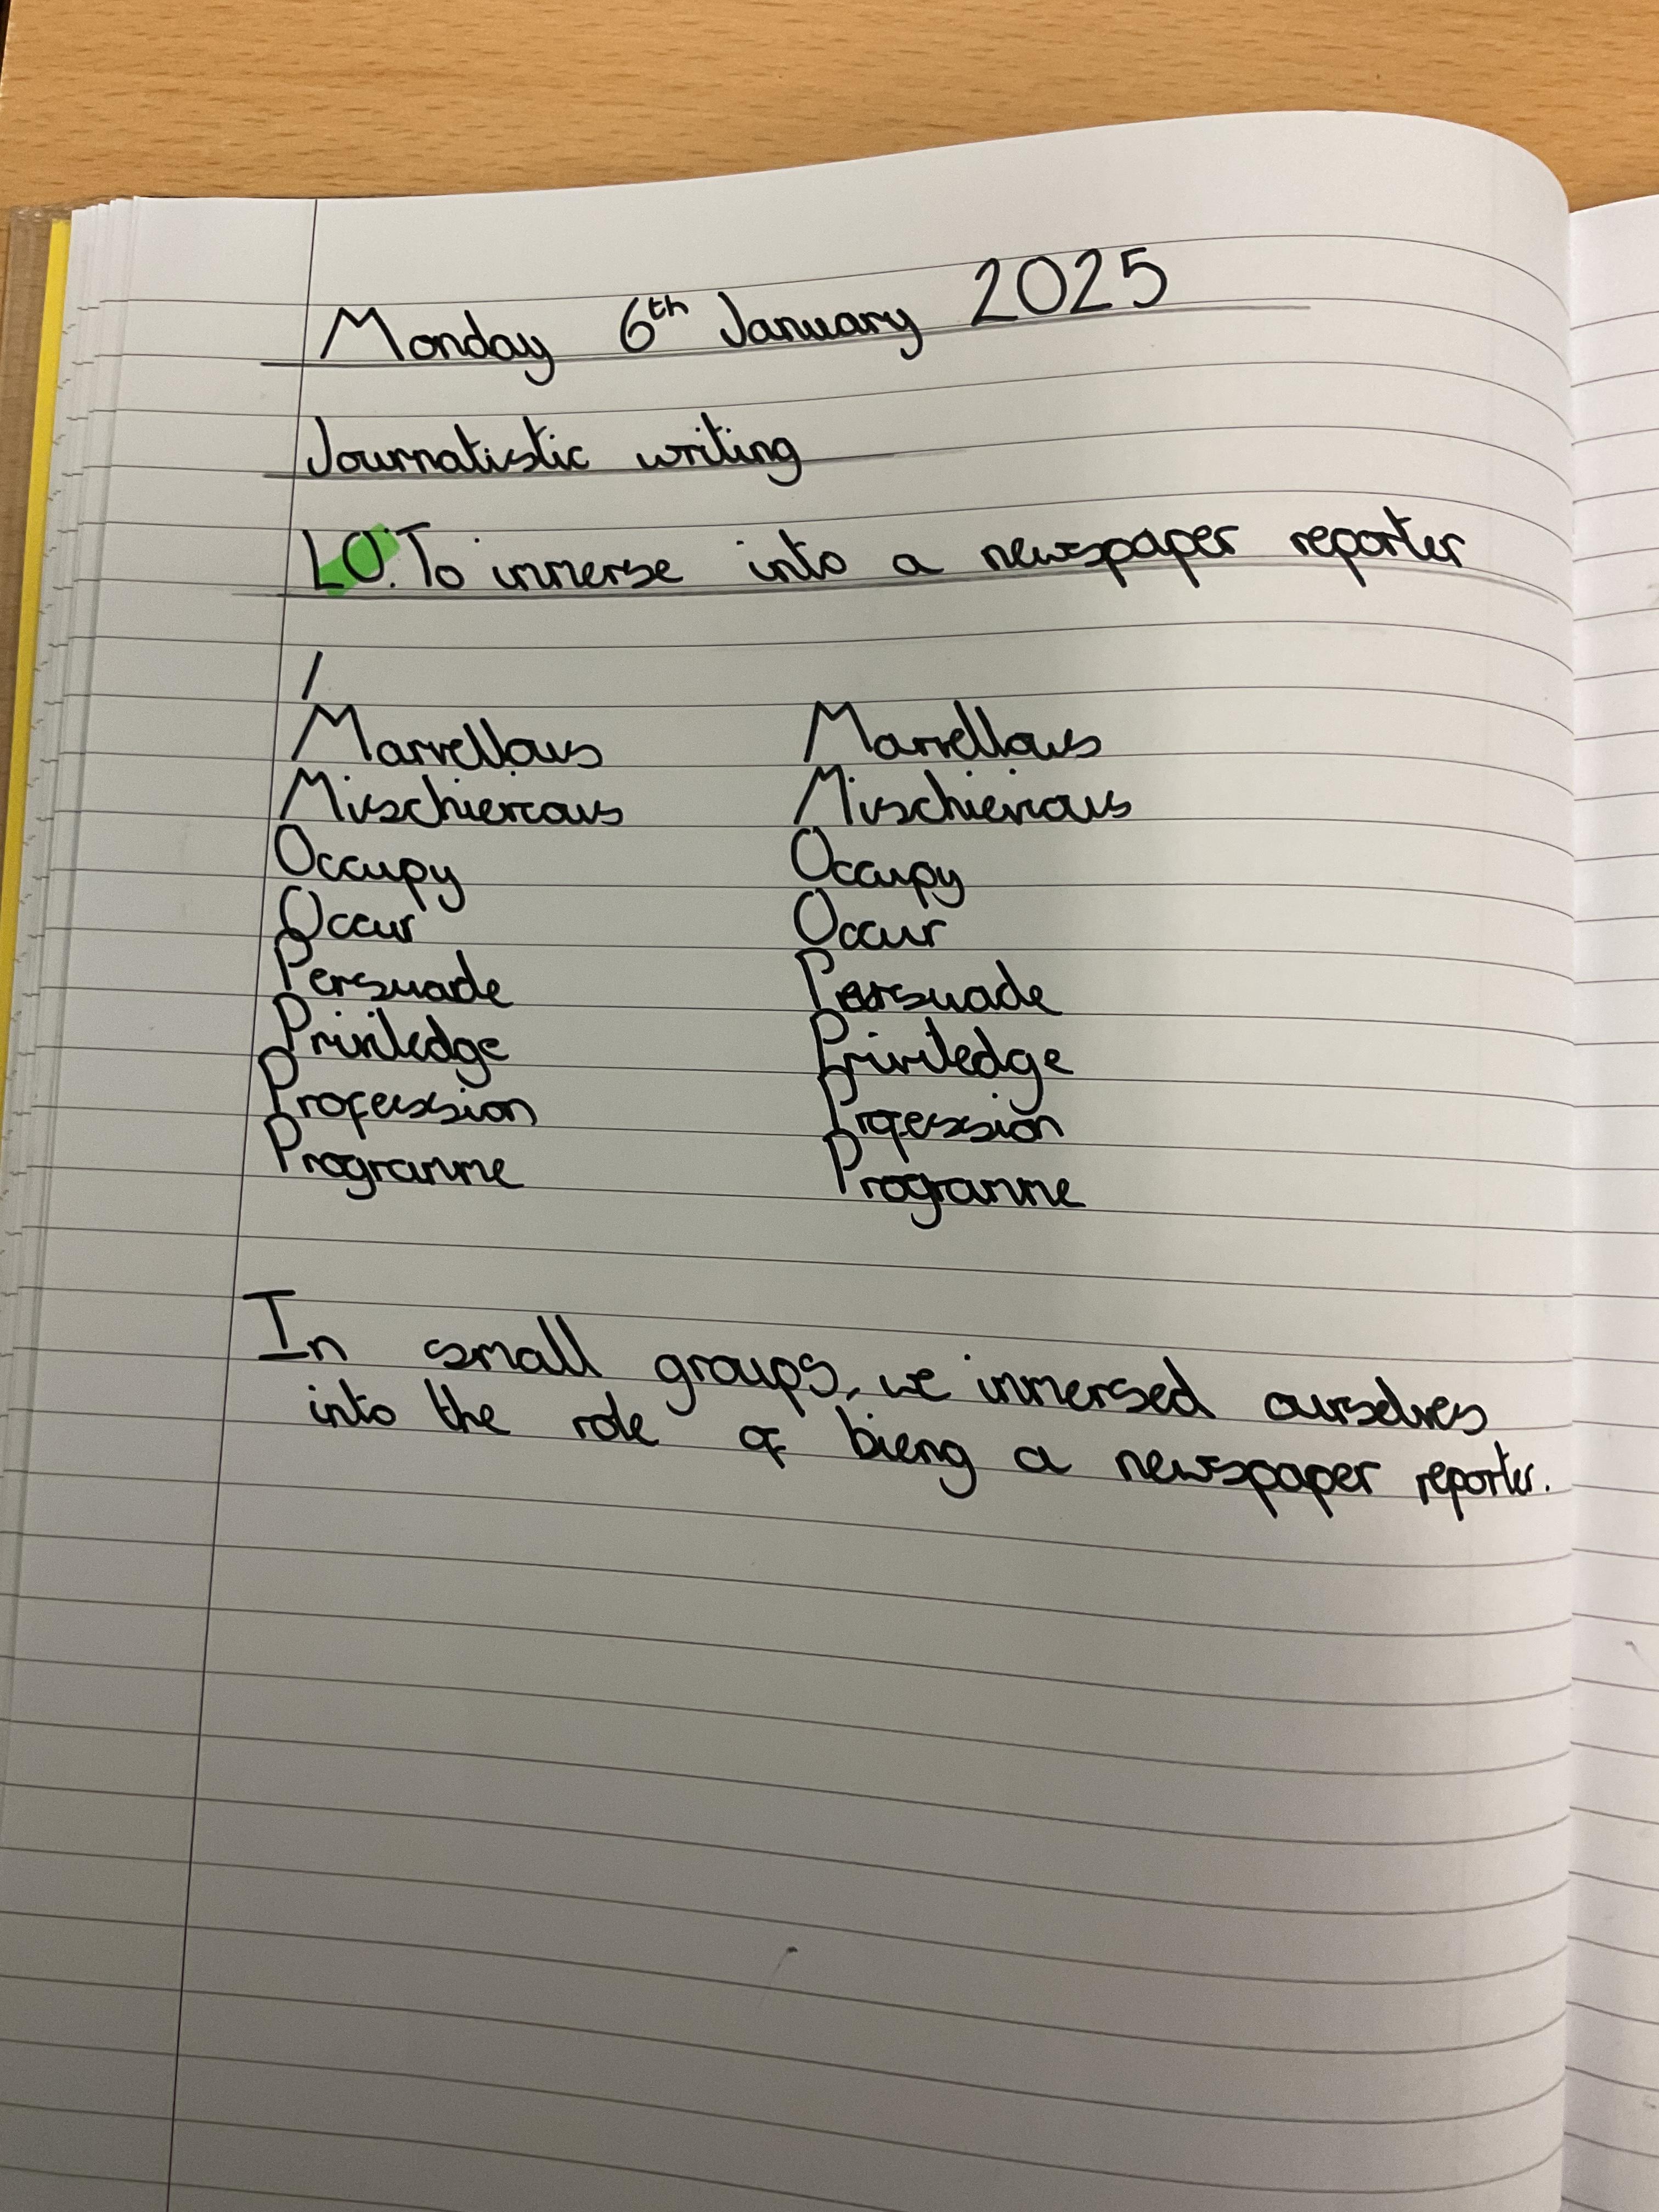 Monday 6th January 2025
Journalistic writing
LO: To immerse into a newspaper reporter
/
Marvellous Marvellous
Mischievous Mischievous
Occupy Occupy
Occur Occur
Persuade Persuade
Priviledge Priviledge
Profession Profession
Programme Programme
In small groups, we immersed ourselves
into the role of bieng a newspaper reporter.